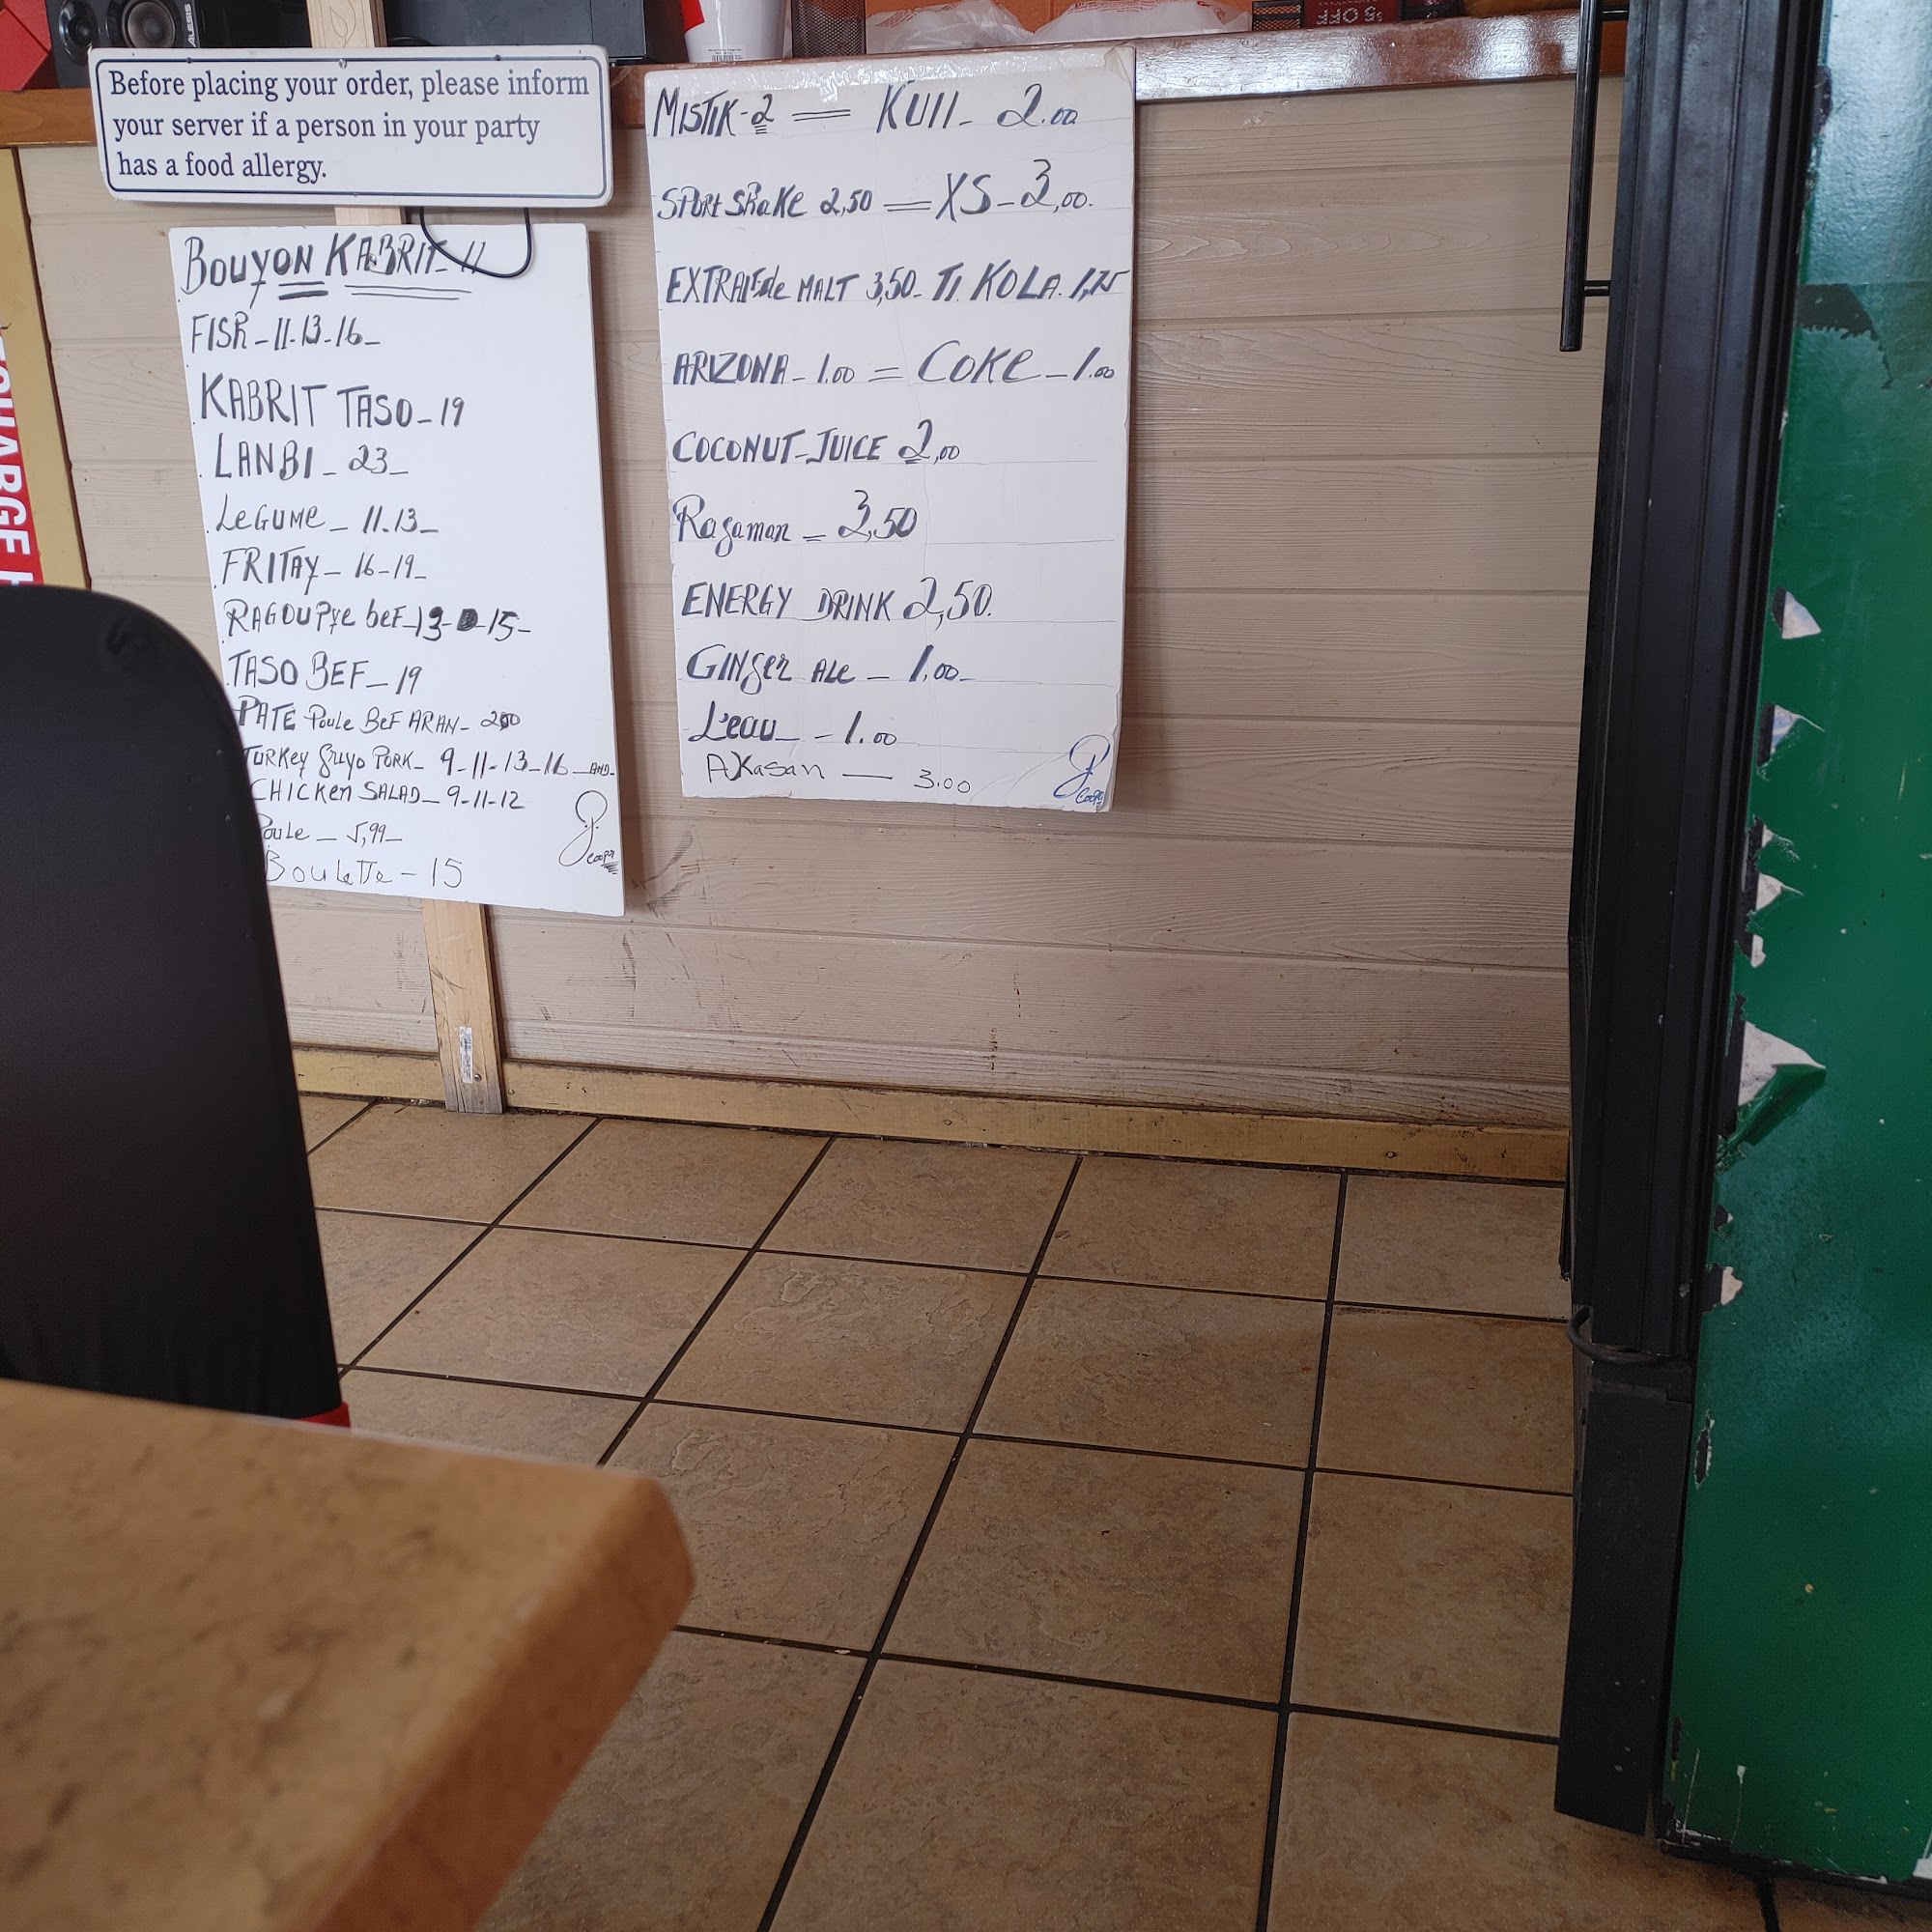 ALESIS
$5 OFF
Before placing your order, please inform
your server if a person in your party
has a food allergy.
BOUYON KABRIT - 11
FISH - 11-13-16 -
KABRIT TASO - 19
LANBI - 23 -
LEGUME - 11.13 -
FRITAY - 16-19 -
RAGOU Pye beF - 13 - 15 -
TASO BEF - 19
PATE Poule BeF ARAN - 200
TURKEY Griyo PORK - 9-11-13-16 - AND -
CHICKEN SALAD - 9-11-12
Poule - 5,99 -
Boulette - 15
MISTIK - 2 = KUll - 2.00
SPORT ShaKE 2,50 = XS - 3,00.
EXTRAIT de MALT 3,50 - TI KOLA. 1,75
ARIZONA - 1.00 = COKE - 1.00
COCONUT - JUICE 2,00
Ragaman = 3,50
ENERGY DRINK 2,50.
GINGER ALE - 1.00 -
L'eau - - 1.00
AKasan — 3.00